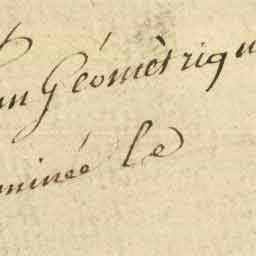 an Géomètriqu
minée le